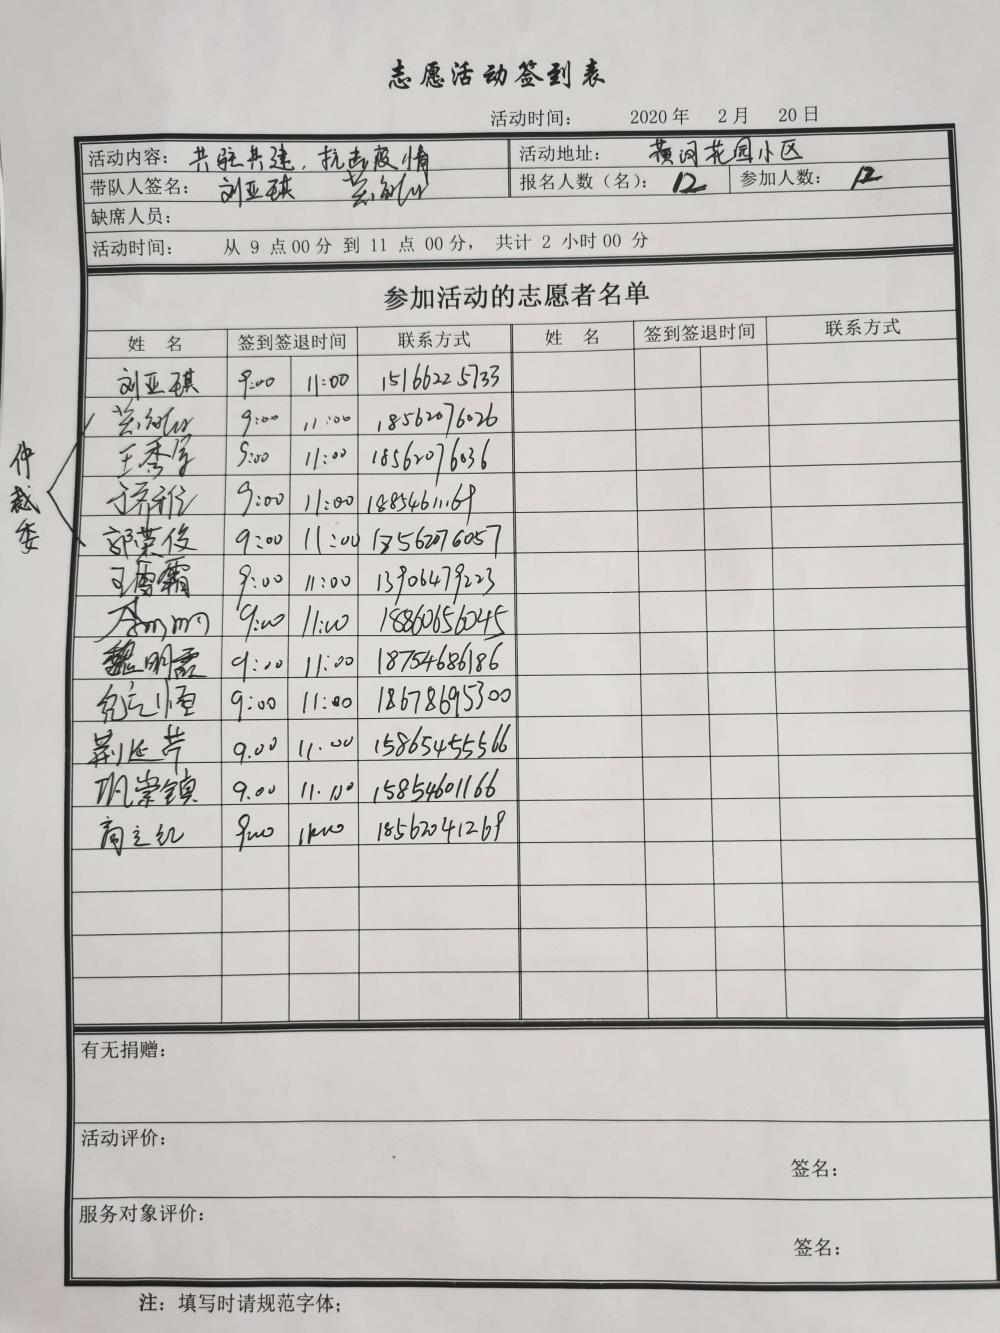 志愿活动签到表
活动时间： 2020年 2月 20日
活动内容：共驻共建，抗击疫情 活动地址：黄河花园小区
带队人签名：刘亚琪 报名人数（名）：12 参加人数：12
缺席人员：
活动时间： 从 9 点00分 到 11 点 00分， 共计 2 小时00 分
参加活动的志愿者名单
姓 名 签到签退时间 联系方式 姓 名 签到签退时间 联系方式
刘亚琪 9:00 11:00 15166225733
9:00 11:00 18562076026
王秀 9:00 11:00 18562076036
仲裁委
9:00 11:00
郭荣俊 9:00 11:00
王雪霜 9:00 11:00 13906479223
9:00 11:00 18860656045
魏明霞 9:00 11:00 18754686186
9:00 11:00 18678695300
荆延芹 9.00 11.00 15865455566
巩崇镇 9.00 11.00 15854601166
商立红 9:00 11:00 18562041269
有无捐赠：
活动评价：
签名：
服务对象评价：
签名：
注：填写时请规范字体；